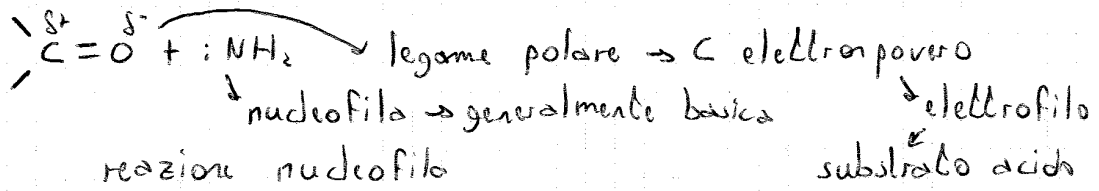 δ+ δ-
C=O + :NH₂ legame polare → C elettronpovero
nucleofila → generalmente basica elettrofilo
reazione nucleofila substrato acido